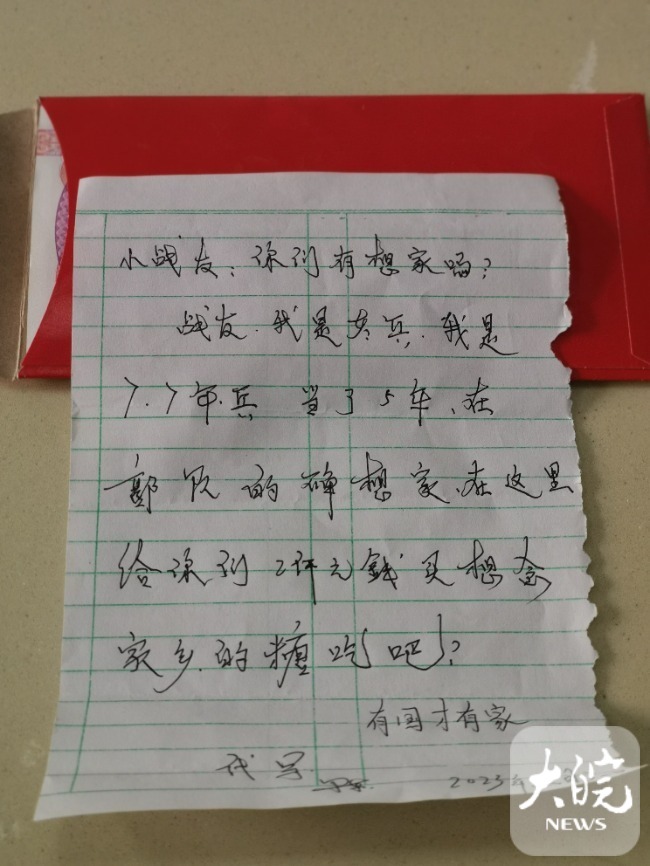 小战友：你们有想家吗？
战友.我是女兵.我是
7.7年.兵 当了5年、在
部队的确想家.在这里
给你们 元钱买想念
家乡.的糖吃吧！？
有国才有家
2023年
大皖
NEWS